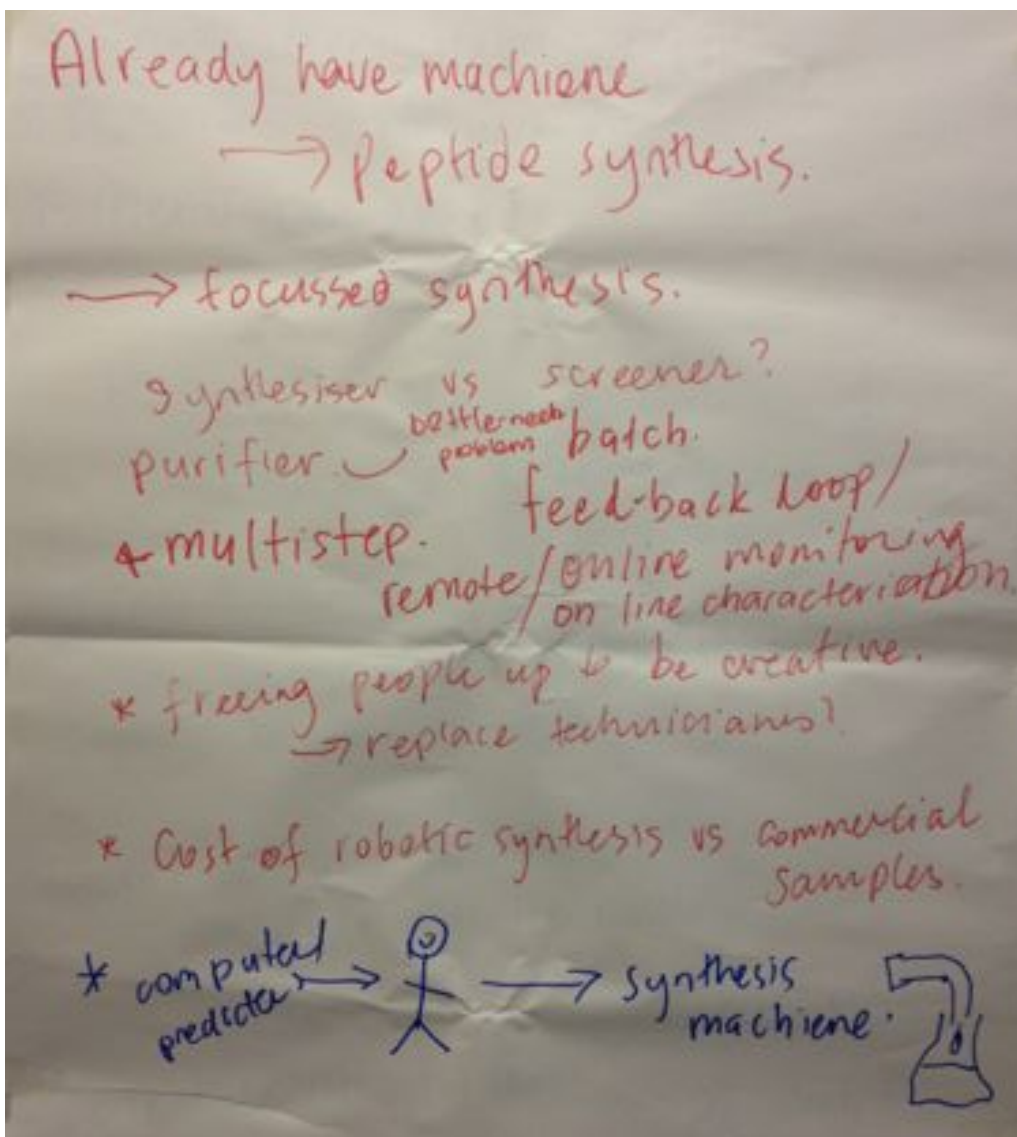 Already have machiene
→ Peptide synthesis.
→ focussed synthesis.
Synthesiser vs screener?
purifier. bottleneck problem batch.
+ multistep. feed-back loop/
remote/online monitoring
/on line characteriation.
* freeing people up to be creative.
→ replace technicianes?
* Cost of robotic synthesis vs commercial
samples.
* computer → → synthesis
predicter machiene.